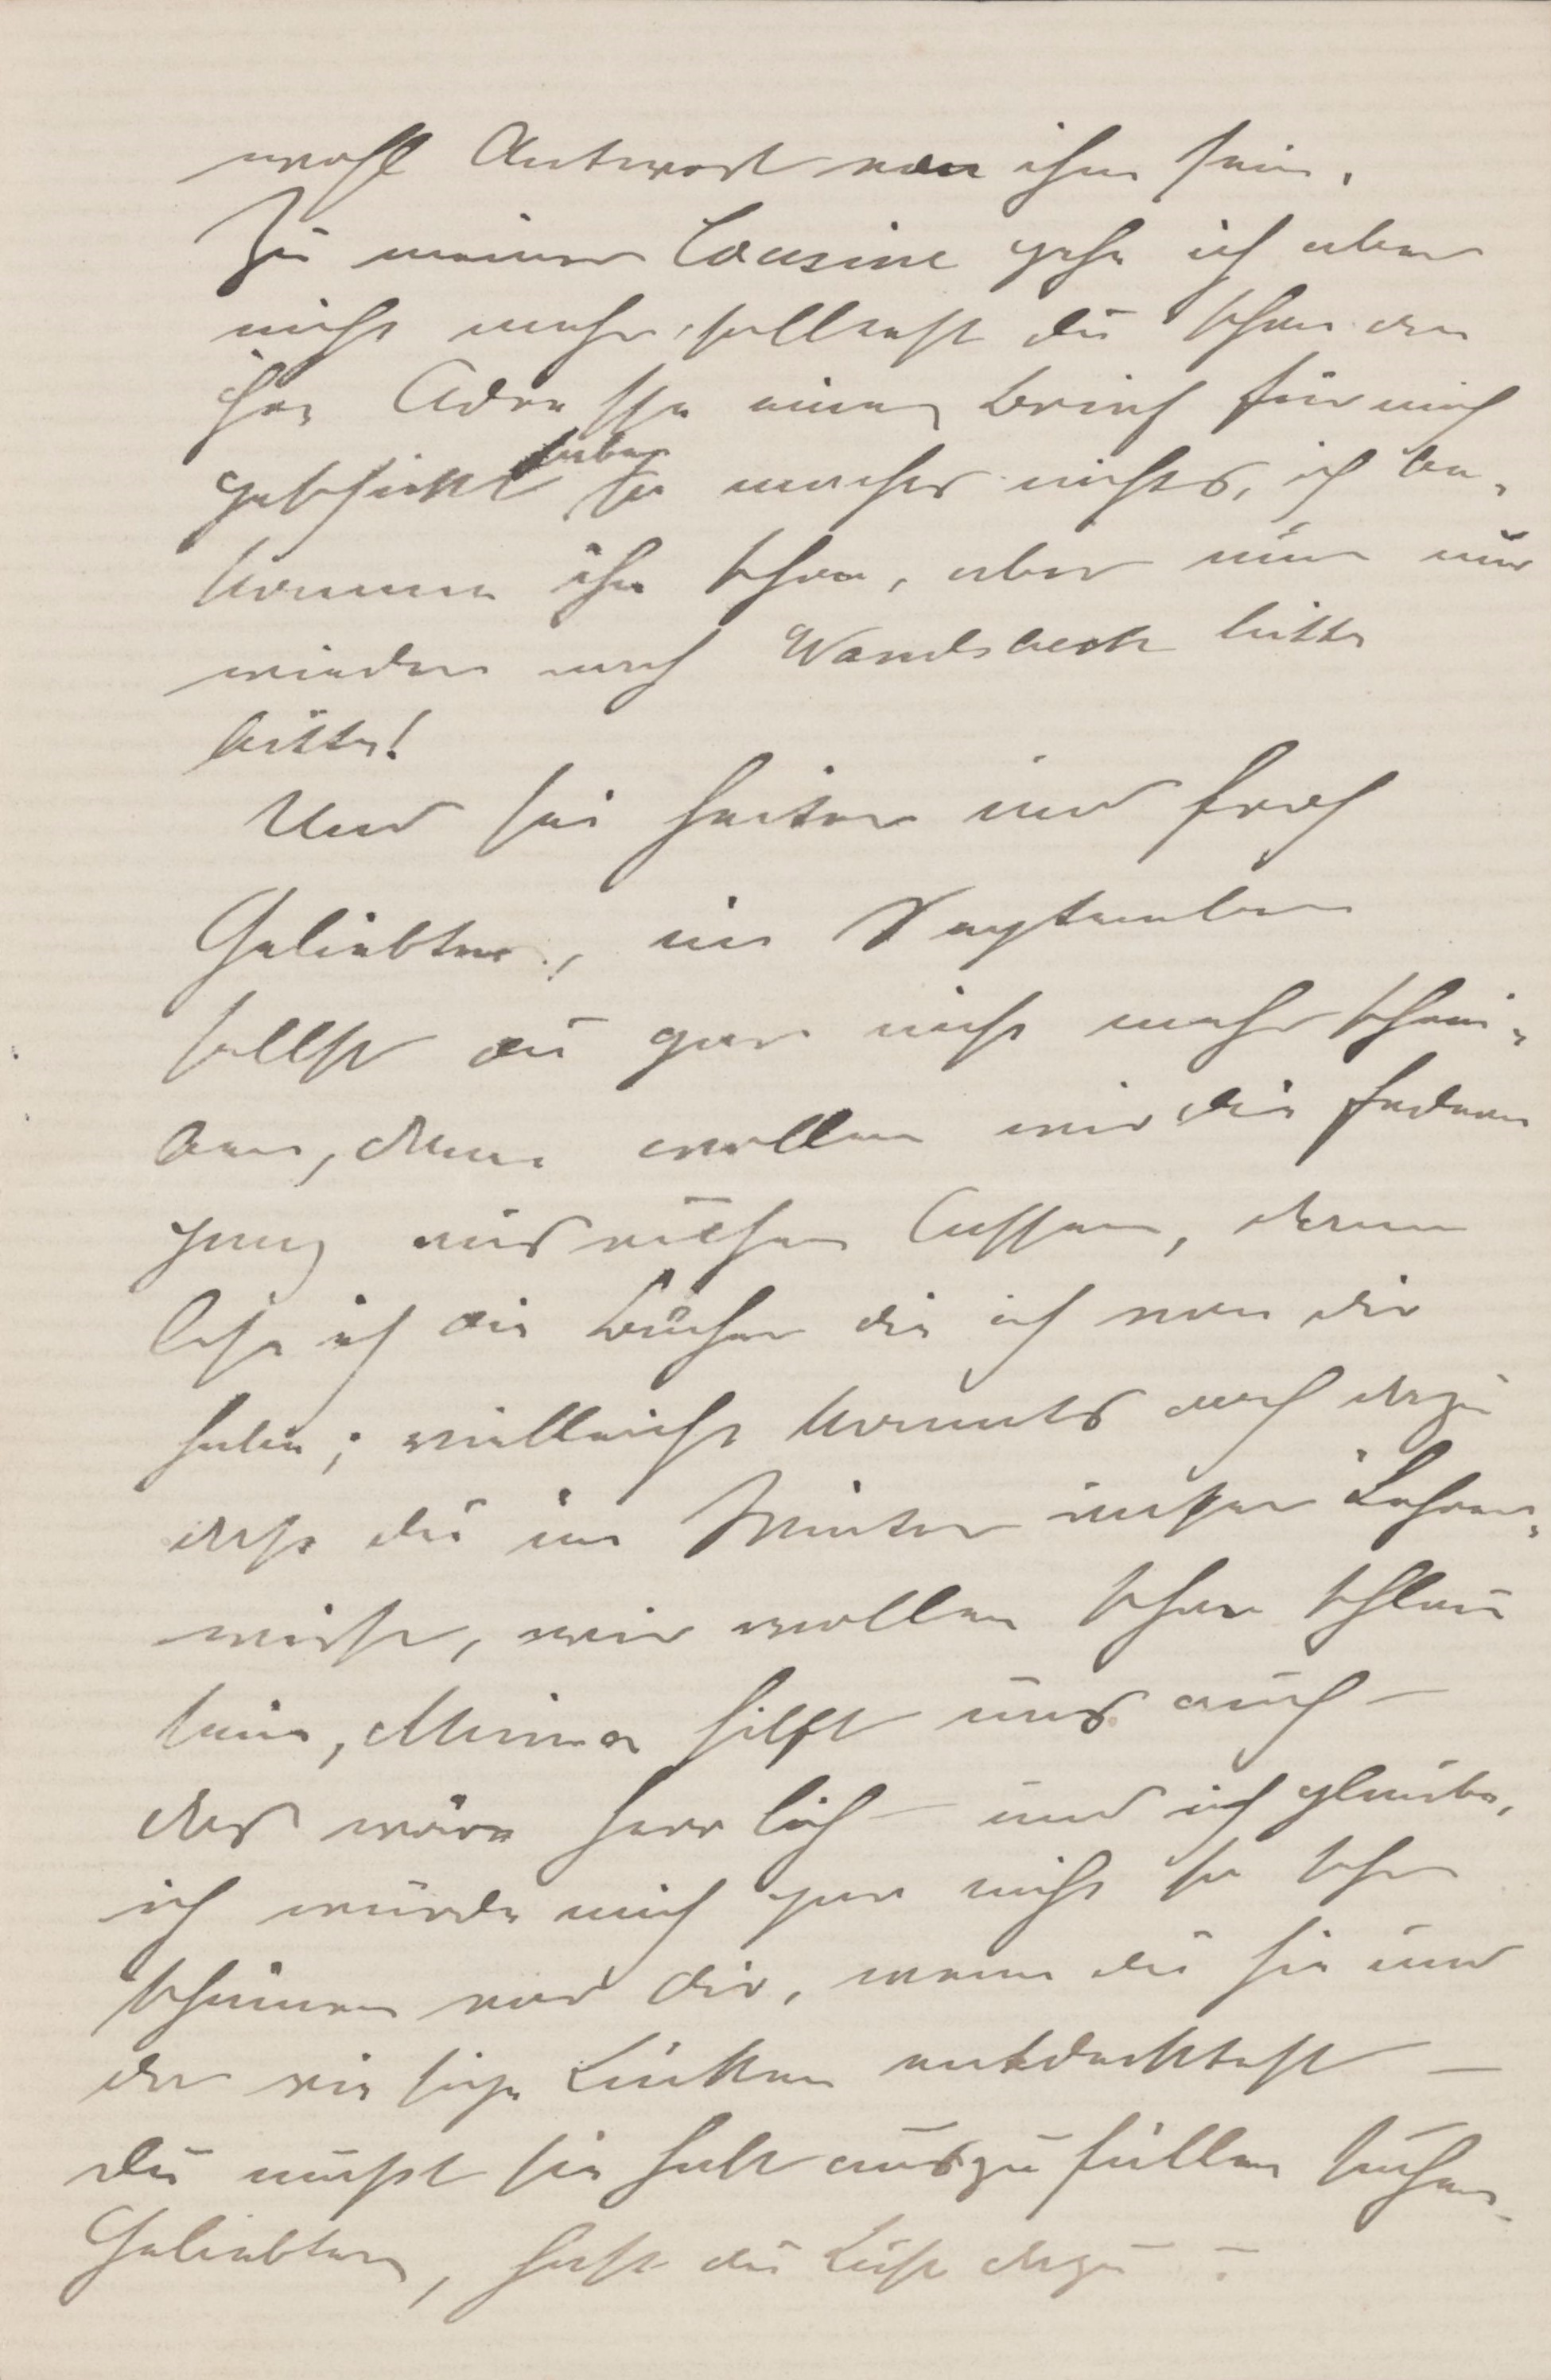 wohl Antwort von ihm sein.
Zu meiner Cousine gehe ich aber
nicht mehr, solltest du schon an
ihre Adresse einen Brief für mich
geschickt haben so machts nichts, ich be-
komme ihn schon, aber nun nur
wieder nach Wandsbeck bitte
bitte!
Und sei heiter und froh
Geliebter, im September
sollst du gar nicht mehr schrei-
ben, dann wollen wir die Federn
ganz ausruhen lassen, dann
lese ich die Bücher die ich von dir
habe; vielleicht kommts auch dazu
dass du im Winter unser Lehrer
wirst, wir wollen schon schlau
sein, Minna hilft uns auch –
das wäre herrlich – und ich glaube,
ich würde mich gar nicht so sehr
schämen vor dir, wenn du hie und
da riesige Lücken entdecktest –
du müsst sie halt auszufüllen suchen.
Geliebter, hast du Lust dazu?